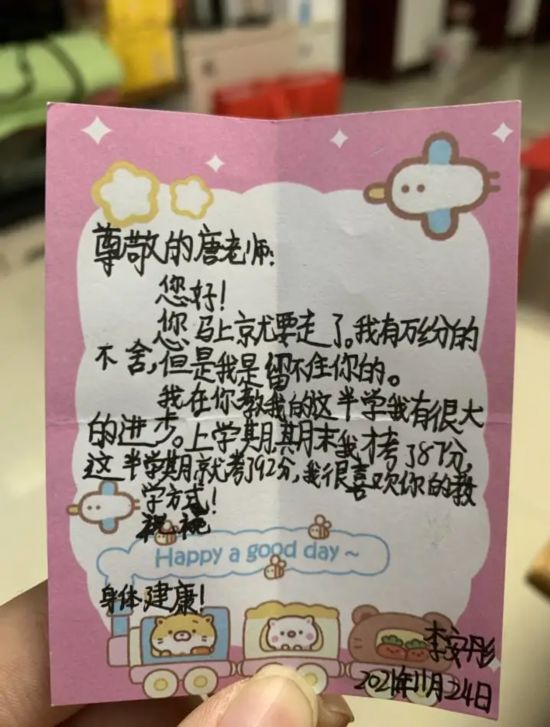 尊敬的唐老师:
您好!
您马上就要走了。我有万分的
不舍,但是我是留不住你的。
我在你教我的这半学我有很大
的进步。上学期,期末我才考了87分,
这半学期就考了92分,我很喜欢你的教
学方式!
祝
Happy a good day ~
身体建康!
李安彤
2021年11月24日